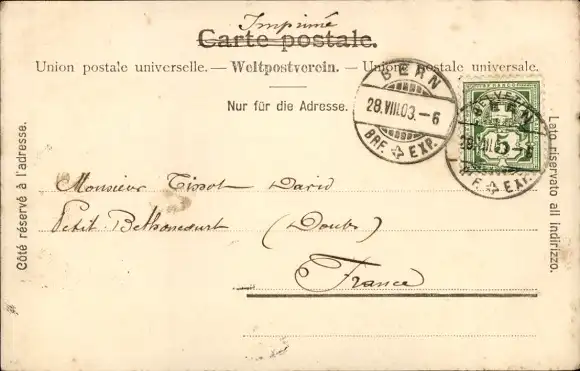 Imprimé
Carte postale.
Union postale universelle. — Weltpostverein. — Union postale universale.
Nur für die Adresse.
BERN
28.VIII.03.—6
BRF. EXP.
HELVETIA
FRANCO
5
BERN
28.VIII.03.—6
BRF. EXP.
Côté réservé à l'adresse.
Lato riservato all indirizzo.
Monsieur Tissot David
Petit Bethoncourt (Doubs)
France